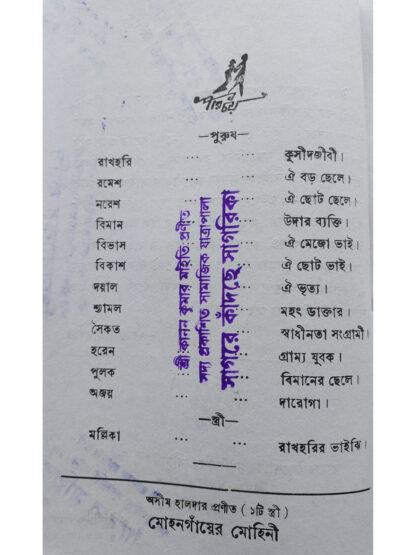 পরিচয়
—পুরুষ—
রাখহরি ... ... কুসীদজীবী।
রমেশ ... ... ঐ বড় ছেলে।
নরেশ ... ... ঐ ছোট ছেলে।
বিমান ... ... উদার ব্যক্তি।
বিভাস ... ... ঐ মেজো ভাই।
বিকাশ ... ... ঐ ছোট ভাই।
দয়াল ... ... ঐ ভৃত্য।
শ্যামল ... ... মহৎ ডাক্তার।
সৈকত ... ... স্বাধীনতা সংগ্রামী।
হরেন ... ... গ্রাম্য যুবক।
পুলক ... ... বিমানের ছেলে।
অজয় ... ... দারোগা।
—স্ত্রী—
মল্লিকা ... ... রাখহরির ভাইঝি।
শ্রী কানন কুমার মাইতি প্রণীত
সদ্য প্রকাশিত সামাজিক যাত্রাপালা
সাগরে কাঁদছে সাগরিকা
অসীম হালদার প্রণীত ( ১টি স্ত্রী )
মোহনগাঁয়ের মোহিনী